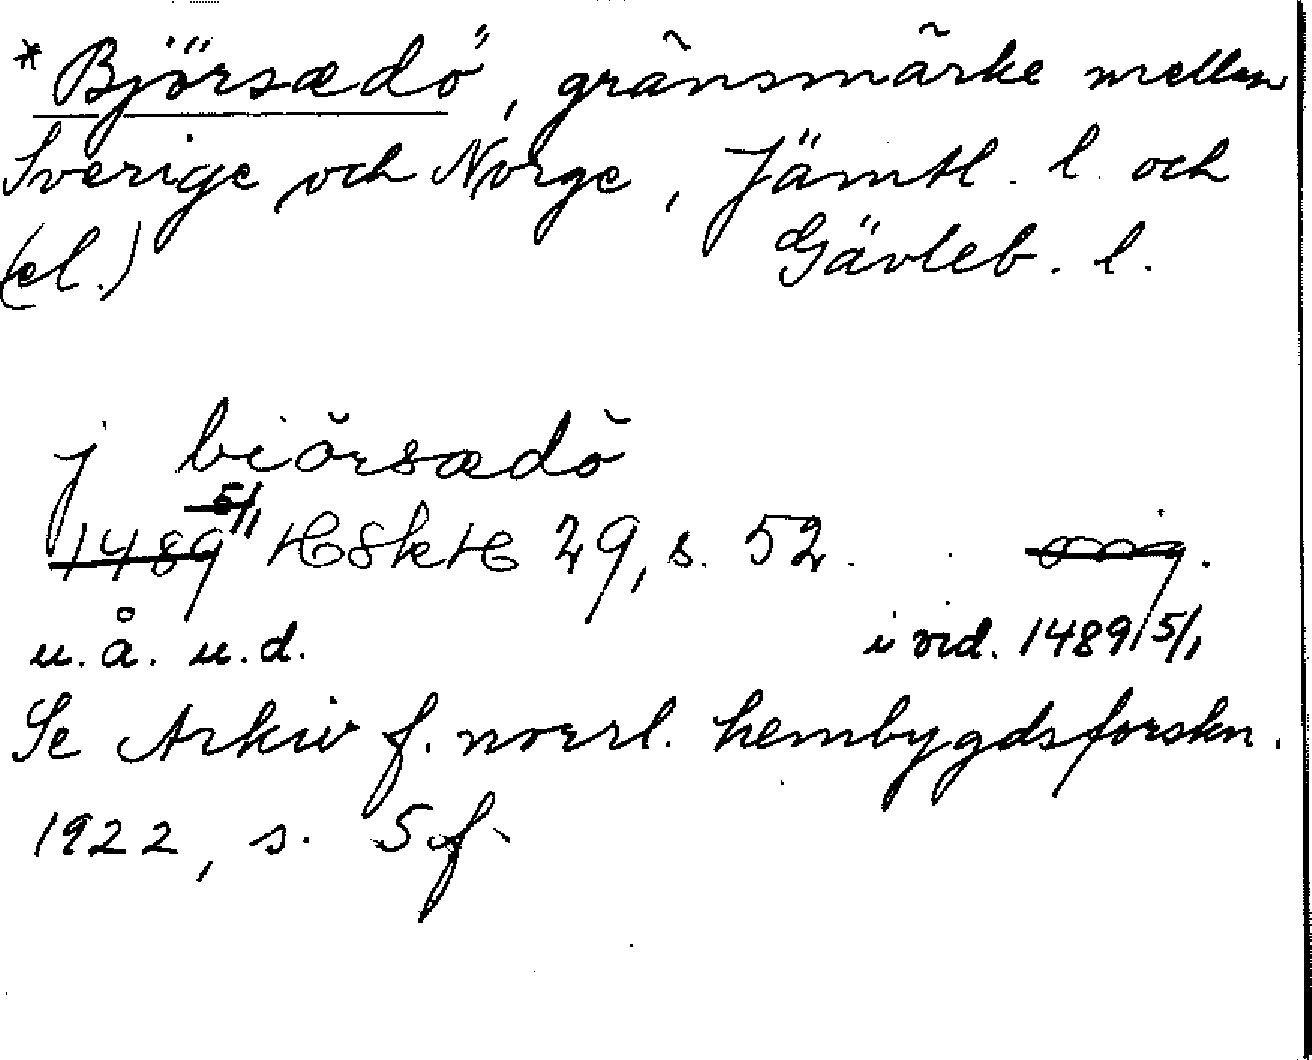 * Björsædö, gränsmärke mellan
Sverige och Norge, Jämtl. l. och
(el.) Gävleb. l.
j biörsædö
1489 5/1 HSkH 29, s. 52. orig.
u.å. u.d. i vid. 1489 5/1
Se Arkiv f. norrl. hembygdsforskn.
1922, s. 5 f.